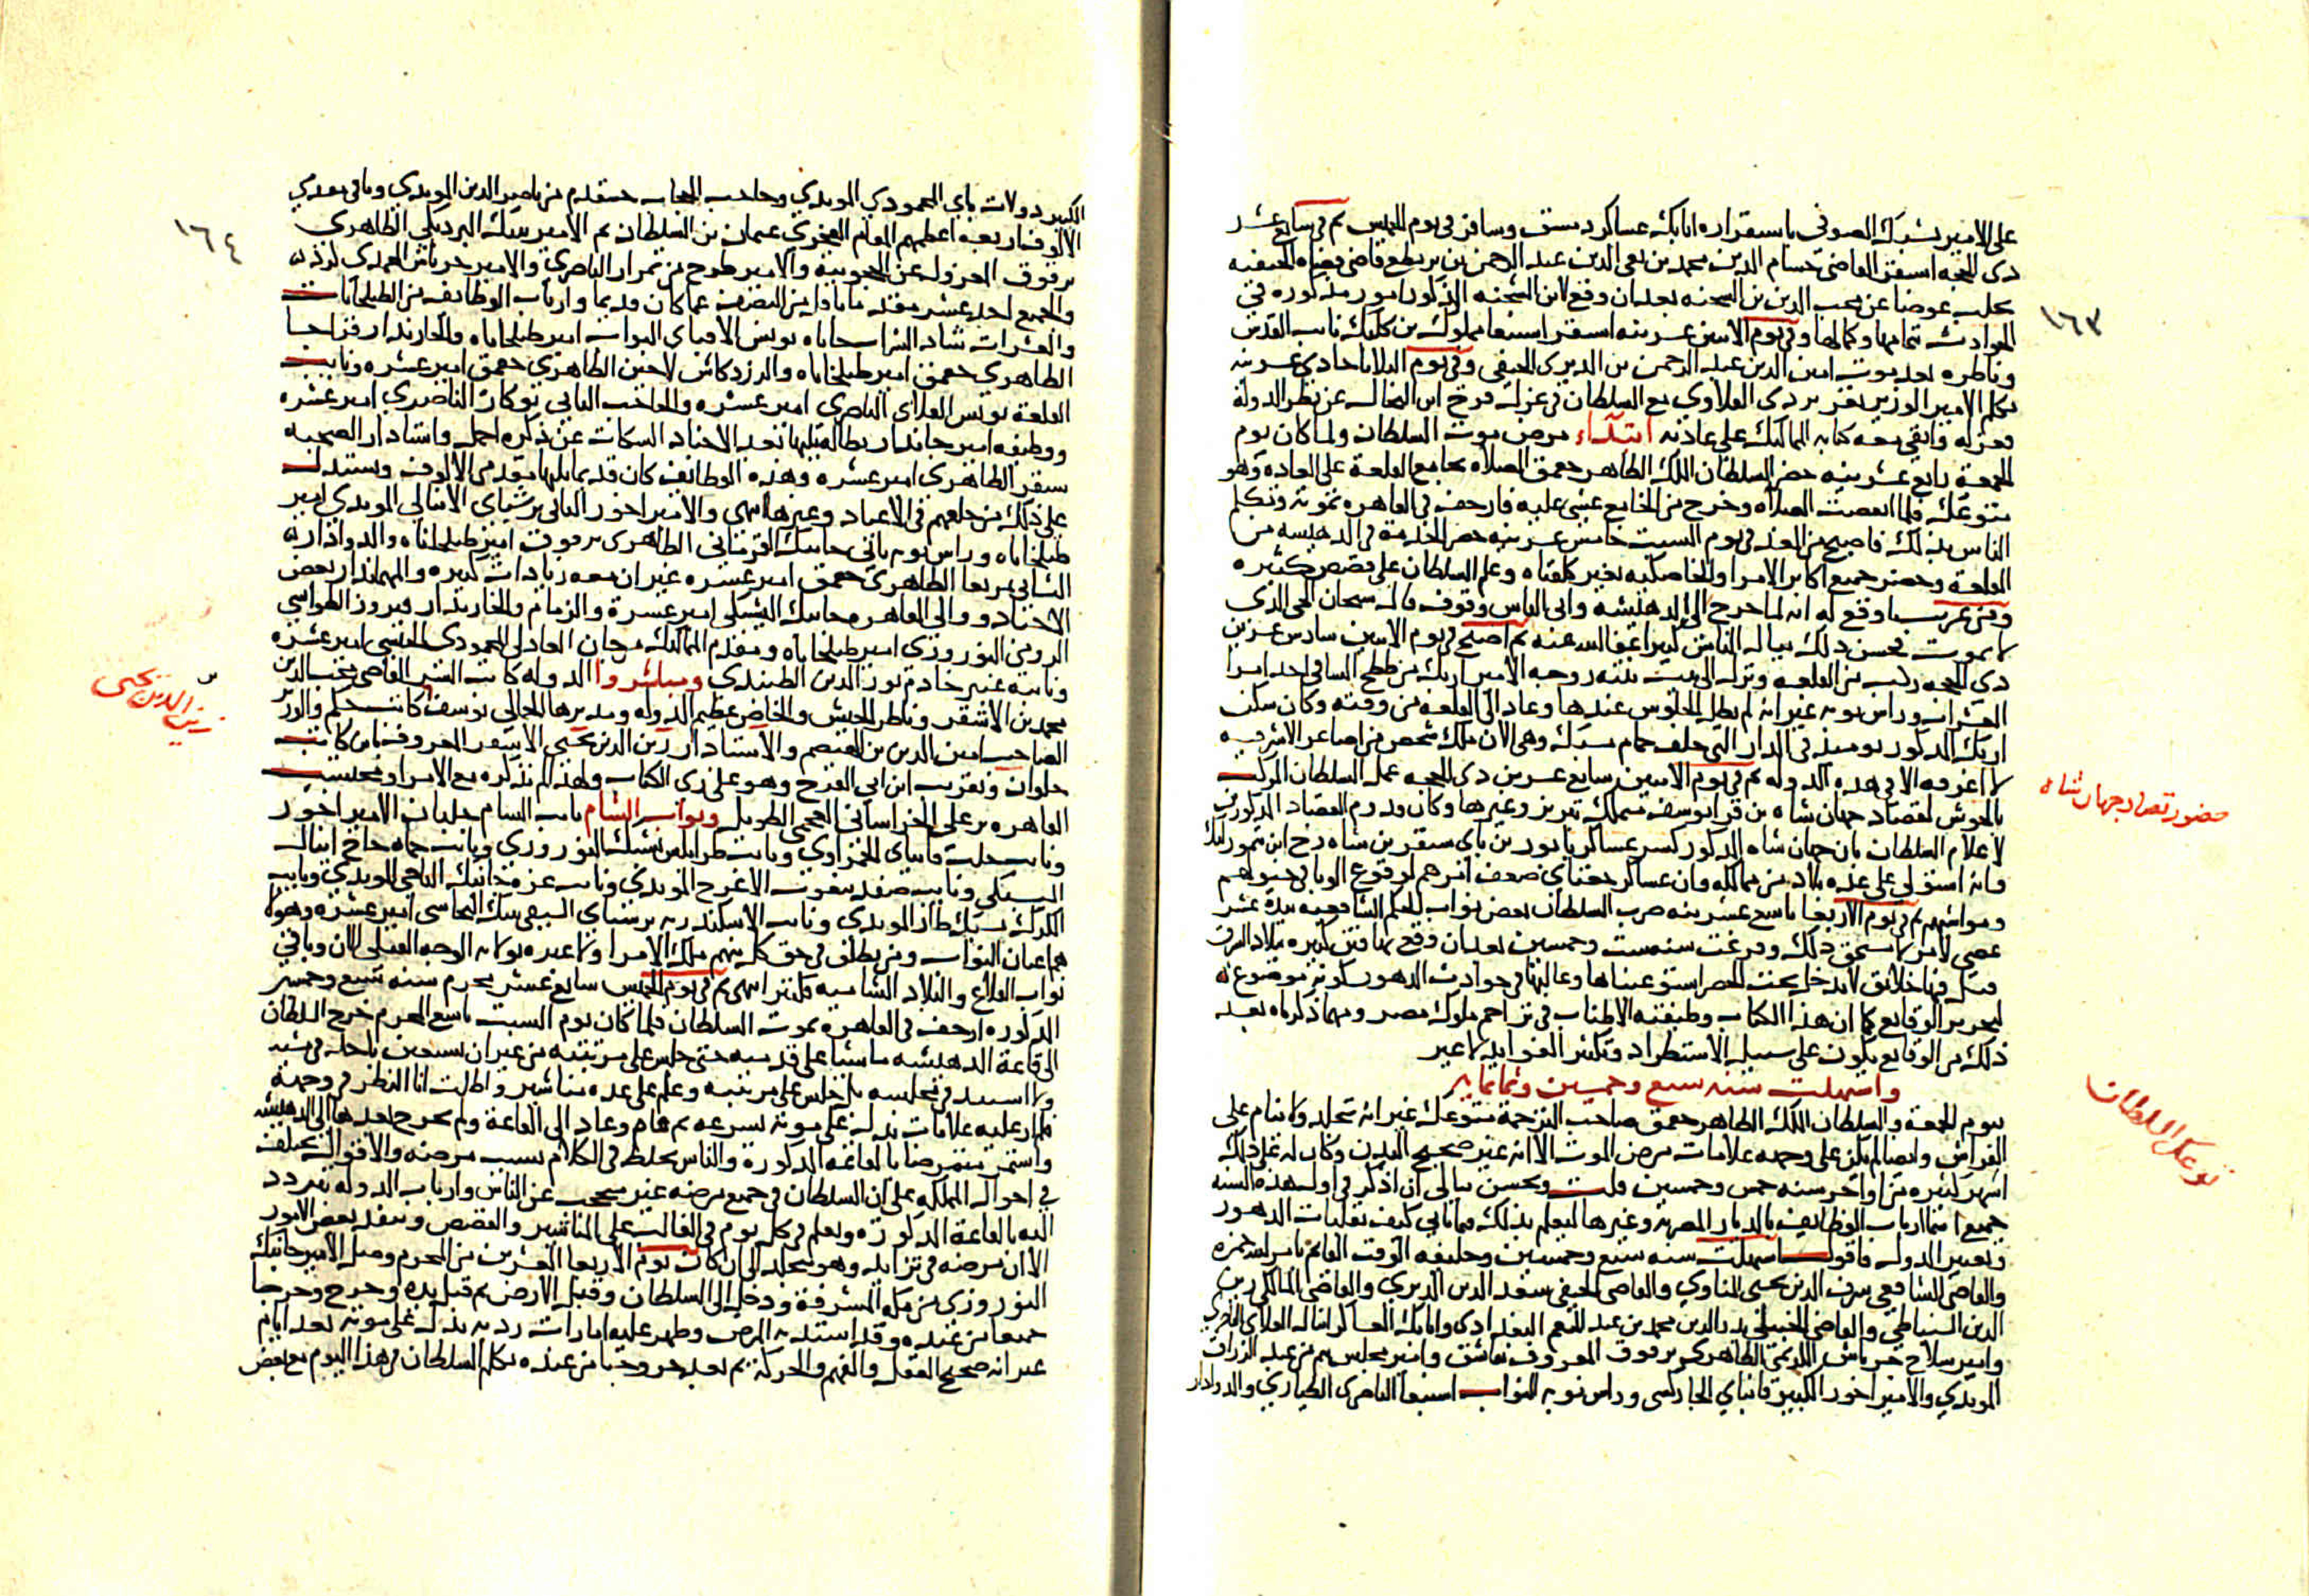 ١٦٣
على الامير يشبك الصوفي باستقراره اتابك عساكر دمشق وسافر في يوم الخميس ثم في سابع عشر
ذي الحجه استقر القاضي حسام الدين محمد بن تقي الدين عبد الرحمن بن بريطع قاضي قضاه الحنفيه
بحلب عوضا عن محب الدين بن الشحنه بعد ان وقع لابن الشحنه المذكور امور مذكوره في
الحوادث بتمامها وكمالها وفي يوم الاثنين عشرينه استقر اسنبغا مملوك بن كلبك نايب القدس
وناظره بعد موت امين الدين عبد الرحمن بن الديري الحنفي وفي يوم الثلاثا حادي عشرينه
تكلم الامير الوزير تغري بردي القلاوي مع السلطان في عزل فرج ابن النحال عن نظر الدولة
فعزله وابقى معه كتابه المماليك على عادته ابتداء مرض موت السلطان ولما كان يوم
الجمعة رابع عشرينه حضر السلطان الملك الظاهر جقمق الصلاه بجامع القلعة على العاده وهو
متوعك فلما انقضت الصلاه وخرج من الجامع غشي عليه فارجف في القاهره بموته وتكلم
الناس بذلك فاصبح من الغد في يوم السبت خامس عشرينه حضر الخدمة في الدهيشه من
القلعة وحضر جميع اكابر الامرا والخاصكيه بغير كلفتاه وعلم السلطان على قصص كثيره
ومن غريب ما وقع له انه لما خرج الى الدهيشه وراى الناس وقوف قال سبحان الحي الذي
لا يموت فحسن ذلك ببال الناس كثيرا عفا الله عنه ثم اصبح في يوم الاثنين سادس عشرين
ذي الحجه ركب من القلعه ونزل الى بيت بنته زوجه الامير ازبك من ططخ الساقي احد امرا
العشرات وراس نوبه غير انه لم يطل الجلوس عندها وعاد الى القلعه من وقته وكان سكن
ازبك المذكور يوميذ في الدار التي خلف حمام بشتك وهي الان ملك شخص من اصاغر الاشرفيه
لا اعرفه الا في هذه الدوله ثم في يوم الاثنين سابع عشرين ذي الحجه عمل السلطان الموكب
بالحوش لقصاد جهان شاه بن قرا يوسف متملك تبريز وغيرها وكان قدوم القصاد المذكورين
لاعلام السلطان بان جهان شاه المذكور كسر عساكر بابور بن باي سنقر بن شاه رخ ابن تمورلنك
وانه استولى على عده بلاد من ممالكه وان عساكر جغتاي ضعف امرهم لوقوع الوبا في خيولهم
ومواشيهم ثم في يوم الاربعا تاسع عشرينه ضرب السلطان بعض نواب الحكم الشافعيه بيده عشر
عصي لامر لا يستحق ذلك وفرغت سنه ست وخمسين بعد ان وقع بها فتن كثيره ببلاد الشرق
قتل فيها خلائق لا يدخل تحت الحصر استوعبناها وغالبها في حوادث الدهور لكونه موضوع له
لتحرير الوقايع كما ان هذا الكتاب وظيفته الاطناب في تراجم ملوك مصر ومهما ذكرناه بعد
ذلك من الوقايع يكون على سبيل الاستطراد وتكثير الفوايد لا غير
واستهلت سنه سبع وخمسين وثمانمايه
بيوم الجمعة والسلطان الملك الظاهر جقمق صاحب الترجمة متوعك غير انه يتجلد ولا ينام على
الفراش وايضا لم يكن على وجهه علامات مرض الموت الا انه غير صحيح البدن وكان له على ذلك
اشهر كثيره من اواخر سنه خمس وخمسين قلت ويحسن ببالي ان اذكر في اول هذه السنه
جميع اسما ارباب الوظايف بالديار المصريه وغيرها ليعلم بذلك فيما ياتي كيف تقلبات الدهور
وتغيير الدول فاقول استهلت سنه سبع وخمسين وخليفه الوقت القائم بامر الله حمزه
والقاضي الشافعي شرف الدين يحيى المناوي والقاضي الحنفي سعد الدين الديري والقاضي المالكي زين
الدين السنباطي والقاضي الحنبلي بدر الدين محمد بن عبد المنعم البغدادي واتابك العساكر اينال العلائي الناصري
وامير سلاح جرباش الكريمي الظاهري برقوق المعروف بعاشق وامير مجلس تنم من عبد الرزاق
المويدي والامير اخور الكبير قاني باي الجاركسي وراس نوبه النواب اسنبغا الناصري الطياري والدوادار
حضور قصاد جهان شاه
توعك السلطان
١٦٤
الكبير دولات باي المحمودي المويدي وحاجب الحجاب خشقدم من ناصر الدين المويدي وباقي مقدمي
الالوف اربعه اعظمهم المقام الفخري عثمان بن السلطان ثم الامير تنبك البردبكي الظاهري
برقوق المعزول عن الحجوبية والامير طوخ من تمراز الناصري والامير جرباش المحمدي كرد
والجميع احد عشر مقدما وارباب الوظائف من الطبلخانات
والعشرات شاد الشرابخاناه يونس الاقباي البواب امير طبلخاناه والخازندار قراجا
الظاهري جقمق امير طبلخاناه والزردكاش لاجين الظاهري جقمق امير عشره ونايب
القلعة يونس العلائي الناصري امير عشره والحاجب الثاني نوكار الناصري امير عشره
ووظيفه امير جاندار بطالة يليها بعض الاجناد السكات عن ذكره اجمل واستادار الصحبه
سنقر الظاهري امير عشره وهذه الوظائف كان قديما يليها مقدمي الالوف ويستدل
على ذلك من خلعهم في الاعياد وغيرها انتهى والامير اخور الثاني برشباي الاينالي المويدي امير
طبلخاناه وراس نوبه ثاني جانبك القرماني الظاهري برقوق امير طبلخاناه والدوادار
الثاني تمربغا الظاهري جقمق امير عشره غير ان معه زيادات كثيره والمهمندار بعض
الاجناد ووالي القاهره جانبك اليشبكي امير عشرة والزمام والخازندار فيروز الطواشي
الرومي النوروزي امير طبلخاناه ومقدم المماليك مرجان العادلي المحمودي الحبشي امير عشره
ونائبه عنبر خادم نور الدين الطنبدي ومباشروا الدوله كاتب السر القاضي محب الدين
محمد بن الاشقر وناظر الجيش والخاص عظيم الدوله ومدبرها الجمالي يوسف كاتب جكم والوزير
الصاحب امين الدين بن الهيصم والاستادار زين الدين يحيى الاشقر المعروف بابن كاتب
حلوان وبقريب ابن ابي الفرج وهو على زي الكتاب ولهذا لم نذكره مع الامرا ومحتسب
القاهره يرعلي الخراساني العجمي الطويل ونواب الشام نايب الشام جلبان الامير اخور
ونايب حلب قاني باي الحمزاوي ونايب طرابلس يشبك النوروزي ونايب حماه حاج اينال
اليشبكي ونايب صفد بيغوت الاعرج المويدي ونايب غزه جانبك التاجي المويدي ونايب
الكرك يشبك طاز المويدي ونايب الاسكندريه برسباي السيفي تنبك البجاسي امير عشره وهولا
هم اعيان النواب ومن يطلق في حق كل منهم ملك الامرا ولا عبره بولايه الوجه القبلي الان وباقي
نواب القلاع والبلاد الشاميه فكثير انتهى ثم في يوم الخميس سابع عشر محرم سنه سبع وخمسين
المذكوره ارجف في القاهره بموت السلطان فلما كان يوم السبت تاسع المحرم خرج السلطان
الى قاعة الدهيشه ماشيا على قدميه حتى جلس على مرتبته من غير ان يستعين باحد في مشيه
ولا استند في مجلسه بل جلس على مرتبته وعلم على عده مناشير واطلت انا النظر في وجهه
فلم ار عليه علامات تدل على موته بسرعه ثم قام وعاد الى القاعة ولم يخرج بعدها الى الدهيشه
واستمر متمرضا بالقاعه المذكورة والناس تخلط في الكلام بسبب مرضه والاقوال تختلف
في احوال المملكه على ان السلطان في جميع مرضه غير محتجب عن الناس وارباب الدوله تتردد
اليه بالقاعة المذكوره ويعلم في كل يوم في الغالب على المناشير والقصص وينفذ بعض الامور
الا ان مرضه في تزايد وهو يتجلد الى ان كان يوم الاربعا العشرين من المحرم وصل الامير جانبك
النوروزي من مكه المشرفة ودخل الى السلطان وقبل الارض ثم قبل يده وخرج وخرجنا
جميعا من عنده وقد اشتد به المرض وظهر عليه امارات رديه تدل على موته بعد ايام
غير انه صحيح العقل والفهم والحركة ثم بعد خروجنا من عنده تكلم السلطان في هذا اليوم مع بعض
زين الدين يحيى